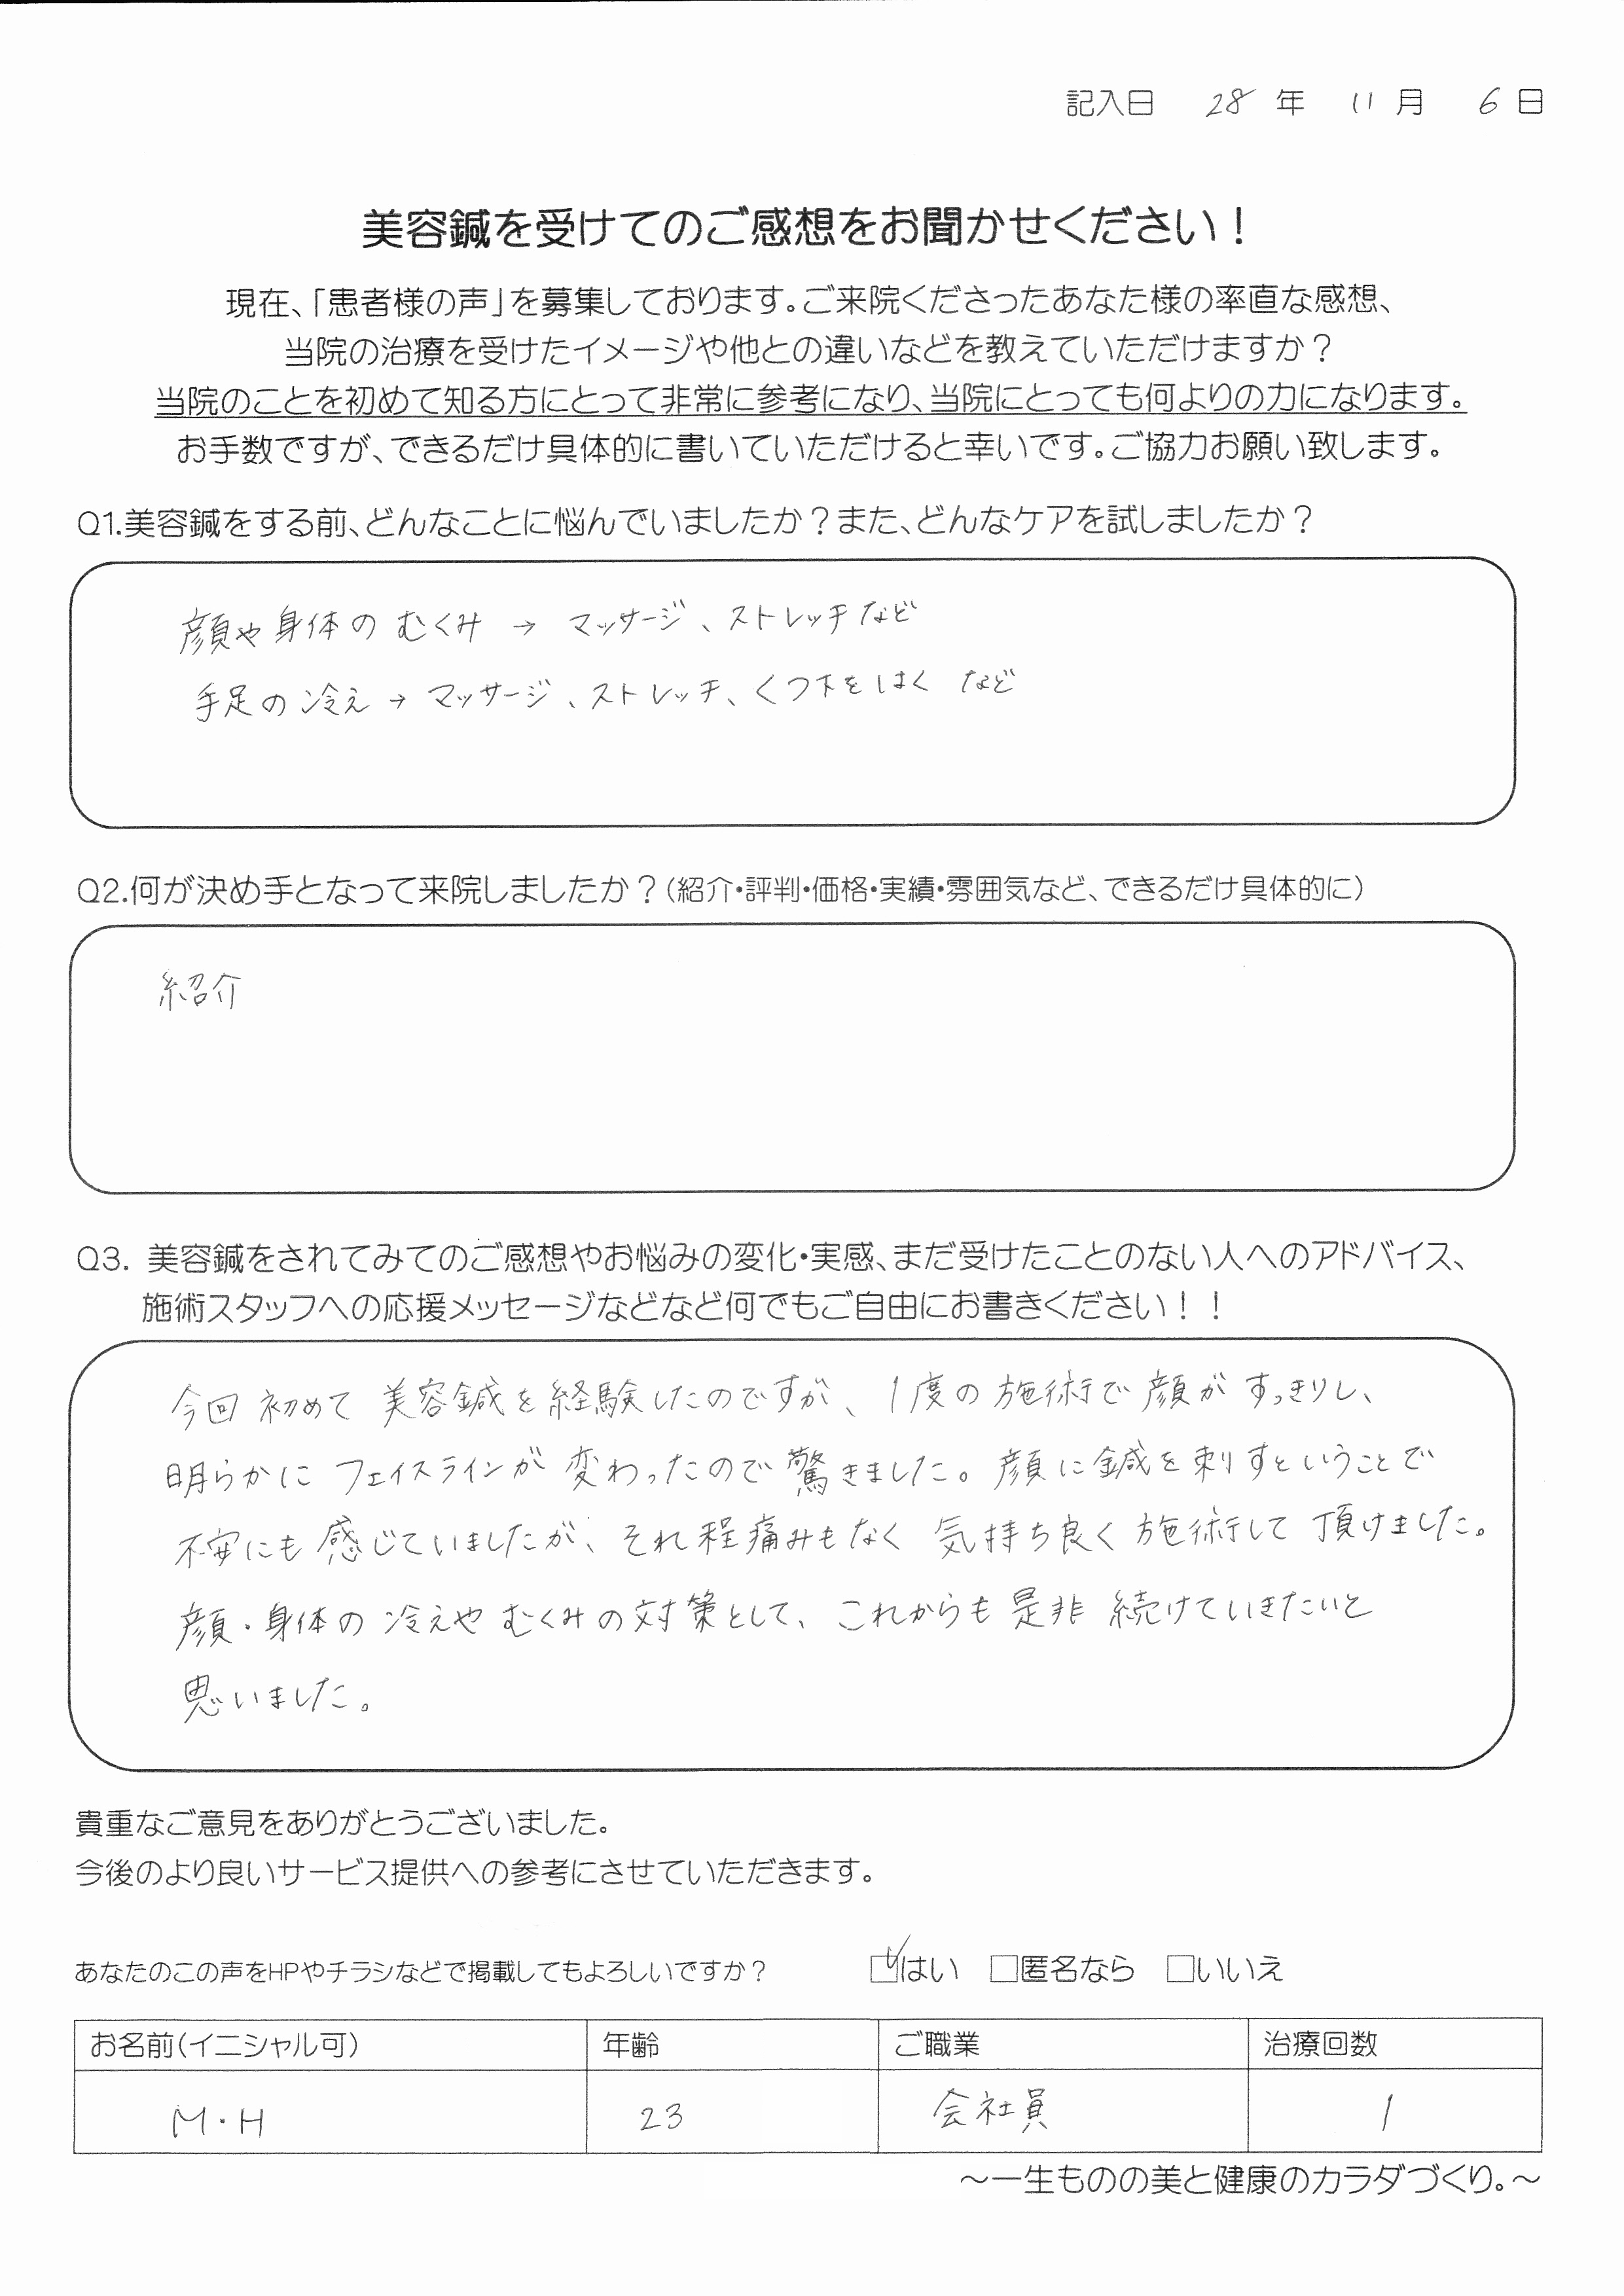 記入日 28 年 11 月 6 日
美容鍼を受けてのご感想をお聞かせください！
現在、「患者様の声」を募集しております。ご来院くださったあなた様の率直な感想、
当院の治療を受けたイメージや他との違いなどを教えていただけますか？
当院のことを初めて知る方にとって非常に参考になり、当院にとっても何よりの力になります。
お手数ですが、できるだけ具体的に書いていただけると幸いです。ご協力お願い致します。
Q1.美容鍼をする前、どんなことに悩んでいましたか？また、どんなケアを試しましたか？
顔や身体の むくみ → マッサージ、ストレッチなど
手足の冷え → マッサージ、ストレッチ、くつ下をはく など
Q2.何が決め手となって来院しましたか？（紹介・評判・価格・実績・雰囲気など、できるだけ具体的に）
紹介
Q3. 美容鍼をされてみてのご感想やお悩みの変化・実感、まだ受けたことのない人へのアドバイス、
施術スタッフへの応援メッセージなどなど何でもご自由にお書きください！！
今回 初めて 美容鍼を経験したのですが、1度の施術で顔がすっきりし、
明らかに フェイスラインが 変わったので驚きました。顔に鍼を刺すということで
不安にも感じていましたが、それ程痛みもなく 気持ち良く施術して頂けました。
顔・身体の冷えや むくみの対策として、これからも是非 続けていきたいと
思いました。
貴重なご意見をありがとうございました。
今後のより良いサービス提供への参考にさせていただきます。
あなたのこの声をHPやチラシなどで掲載してもよろしいですか？ ☑はい □匿名なら □いいえ
お名前（イニシャル可） 年齢 ご職業 治療回数
M・H 23 会社員 1
～一生ものの美と健康のカラダづくり。～